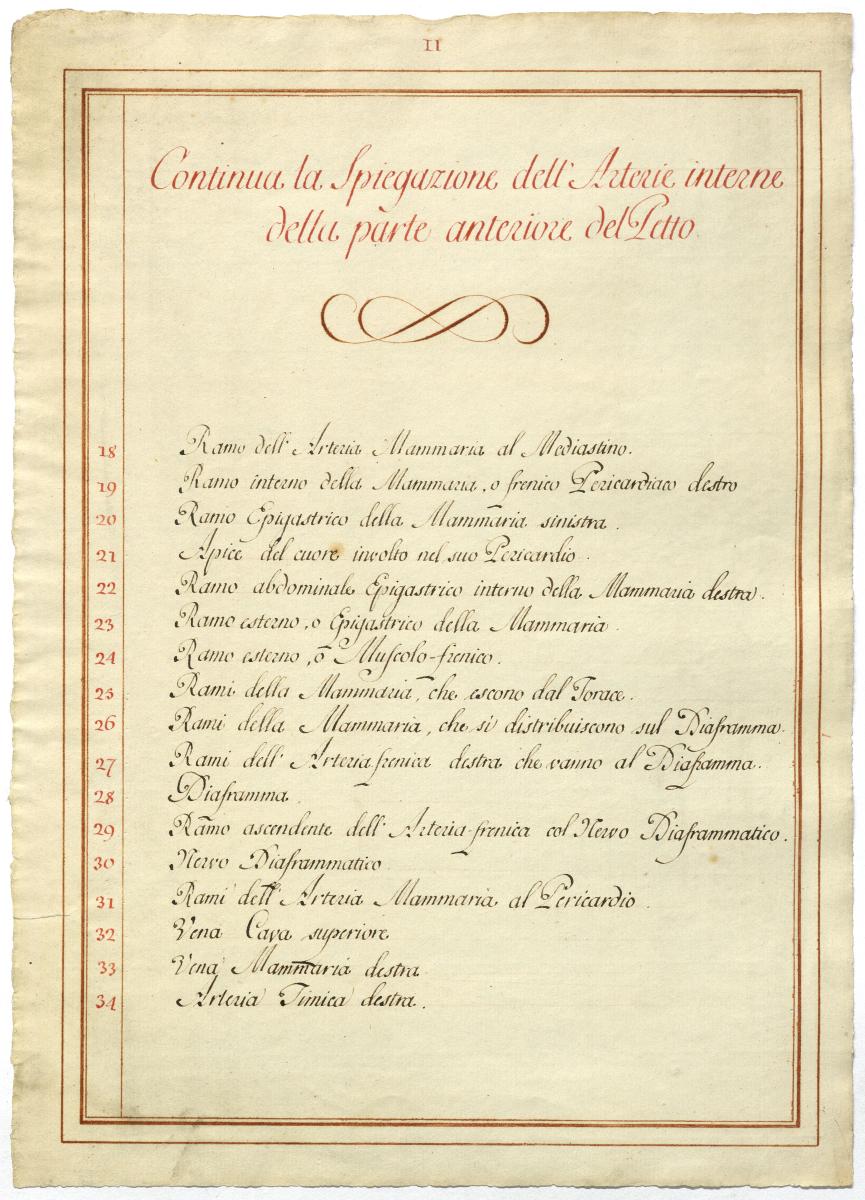 II
Continua la Spiegazione dell'Arterie interne
della parte anteriore del Petto
18 Ramo dell'Arteria Mammaria al Mediastino.
19 Ramo interno della Mammaria, o frenico Pericardiaco destro
20 Ramo Epigastrico della Mammaria sinistra.
21 Apice del cuore involto nel suo Pericardio.
22 Ramo abdominale Epigastrico interno della Mammaria destra.
23 Ramo esterno, o Epigastrico della Mammaria.
24 Ramo esterno, ō Muscolo-frenico.
25 Rami della Mammaria, che escono dal Torace.
26 Rami della Mammaria, che si distribuiscono sul Diaframma.
27 Rami dell'Arteria-frenica destra che vanno al Diaframma.
28 Diaframma.
29 Ramo ascendente dell'Arteria-frenica col Nervo Diaframmatico.
30 Nervo Diaframmatico
31 Rami dell'Arteria Mammaria al Pericardio.
32 Vena Cava superiore
33 Vena Mammaria destra
34 Arteria Timica destra.